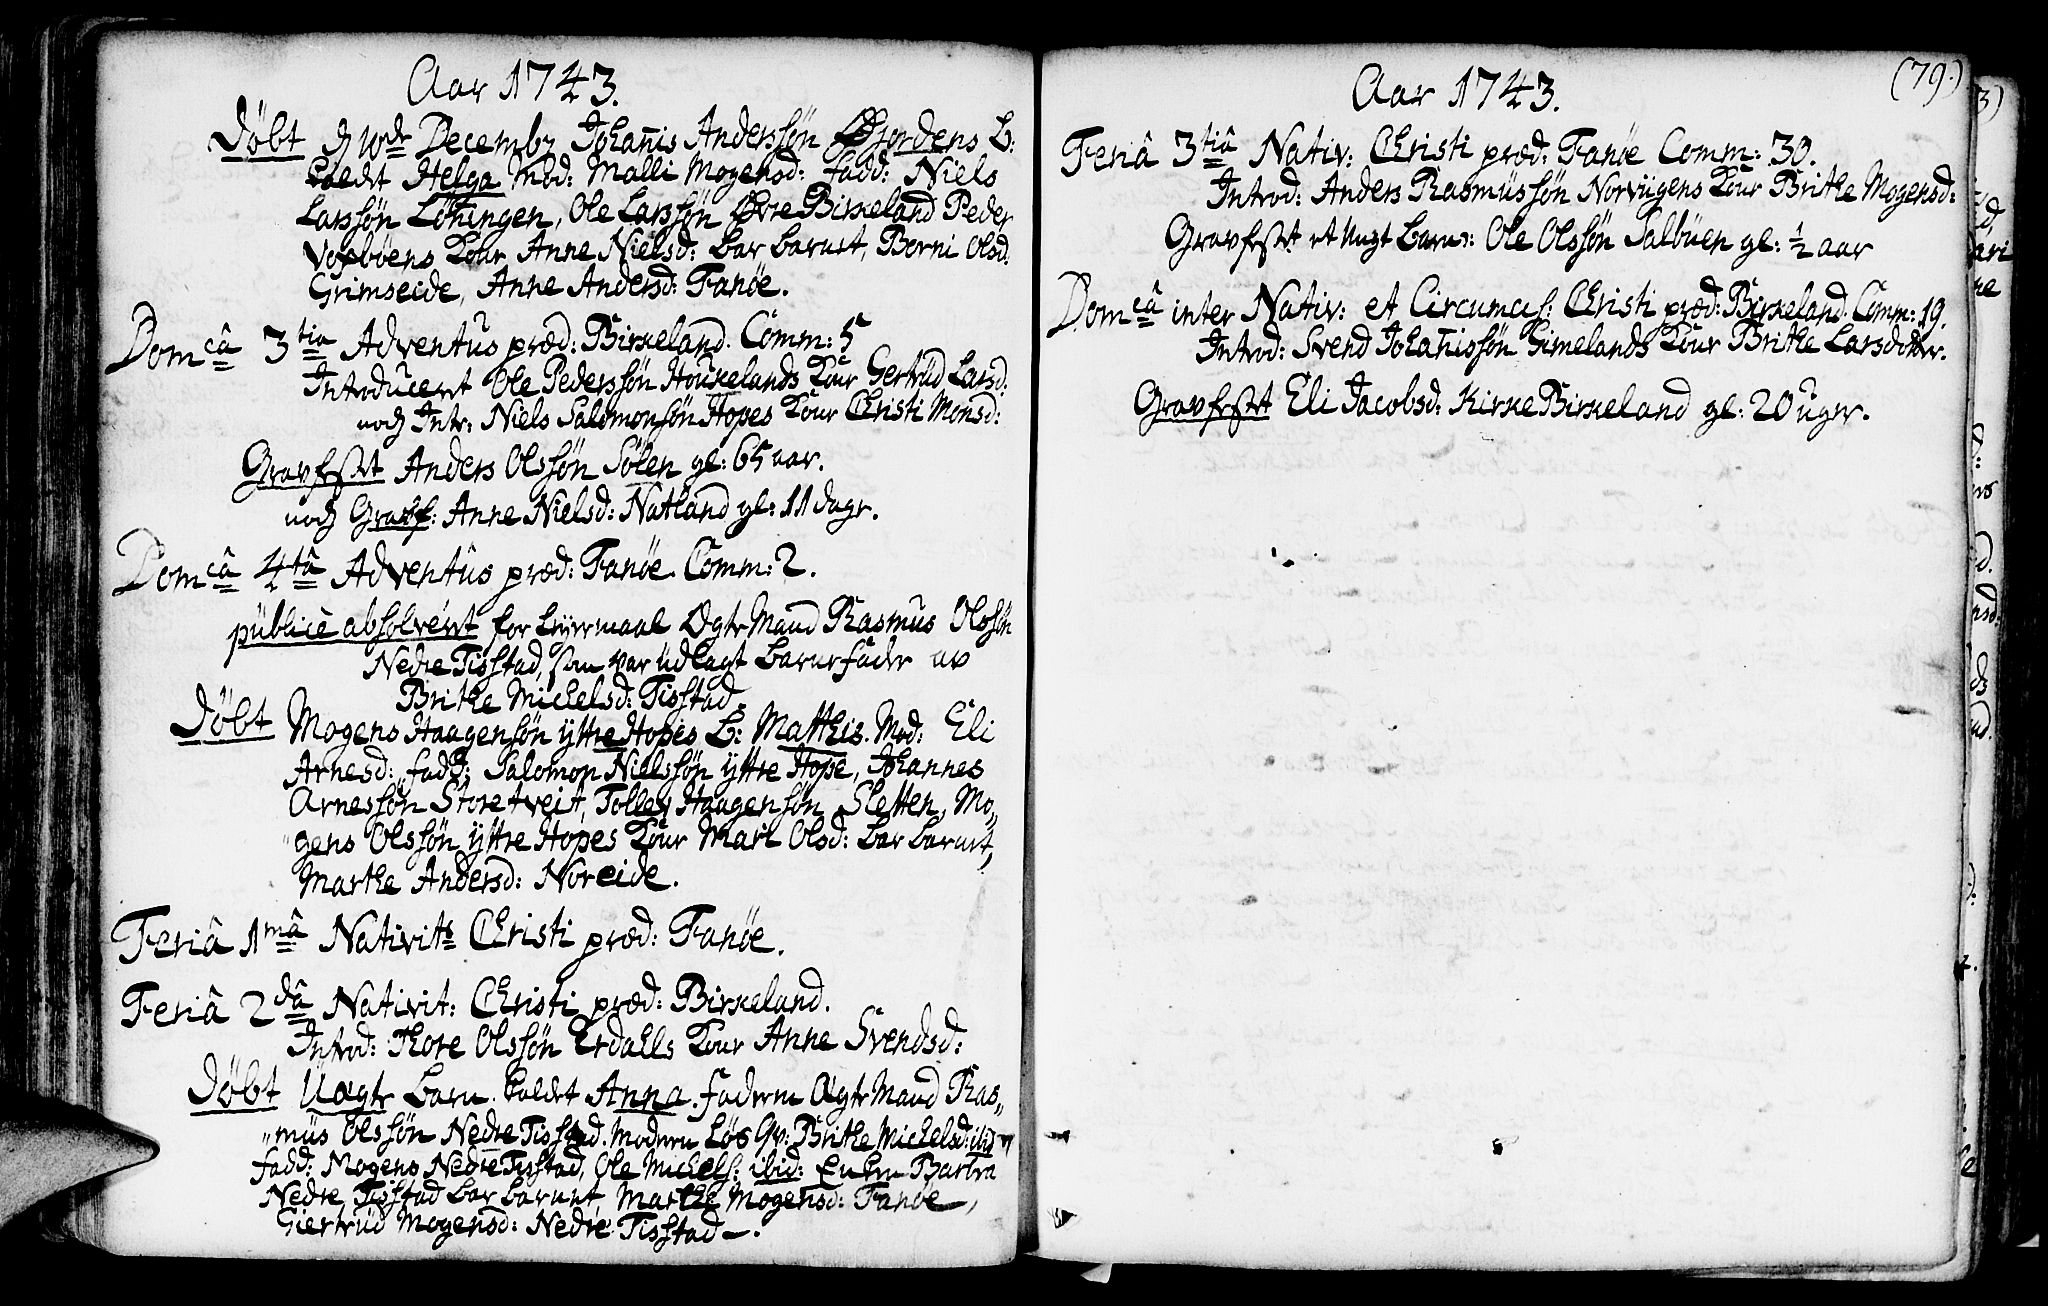 Aar 1743.
Döbt d. 10de Decembr Johannis Anderssön Øfjordens B:
kaldt Helga Mod: Malli Mogensd: fadd: Niels
Larssön Löningen, Ole Larssön Øvre Birkeland Peder
Voxböens Kour Anne Nielsd: bar barnet, Borni Olsd:
Grimseide, Anne Andersd: Fanöe.
Domcâ 3tia Adventus præd: Birkeland. Comm: 5
Introduceret Ole Pederssön Houkelands Kour Gertrüd Larsd:
noch Intr: Niels Salomonsön Hopes Kour Christi Monsd:
Gravfestet Anders Olssön Sölen gl: 65 aar.
noch Gravf: Anne Nielsd: Natland gl: 11 dage.
Domcâ 4tâ Adventûs præd: Fanöe. Comm: 2.
püblicè absolveret for Leyermaal Ægte Mand Rasmus Olssön
Nedre Tisstad, som var üdlagt Barnefader av
Brithe Michelsd: Tisstad.
Döbt Mogens Haagensön yttre Hopes B: Matthis. Mod: Eli
Arnesd: fadd: Salomon Nielssön yttre Hope, Johannes
Arnessön Storetveit, Tolley Haagensön Sletten, Mo„
„gens Olssön yttre Hopes Kour Mari Olsd: bar barnet,
Marthe Andersd: Noreide.
Feriâ 1mâ Nativits Christi præd: Fanöe.
Feriâ 2dâ Nativit: Christi præd: Birkeland.
Introd: Thore Olssön Erdalls Kour Anne Svendsd:
Döbt Uægte barn. kaldet Anna. faderen Ægte Mand Ras„
„müs Olssön Nedre Tisstad. Moderen Løs Qv: Brithe Michelsd: ibid
fadd: Mogens Nedre Tisstad, Ole Michels: ibid: Enken Barbra
Nedre Tisstad bar barnet Marthe Mogensd: Fanöe,
Giertrüd Mogensd: Nedre Tisstad.
(79.)
Aar 1743.
Feriâ 3tiâ Nativ: Christi præd: Fanöe Comm: 30.
Introd: Anders Rasmüssön Norviigens Kour Brithe Mogensd:
Gravfestet et ungt barn: Ole Olssön Salbüen gl: ½ aar
Domcâ inter Nativ: et Circumcis: Christi præd: Birkeland. Comm: 19.
Introd: Svend Johannissön Gimelands Kour Brithe Larsdotter.
Gravfestet Eli Jacobsd: Kirke Birkeland gl: 20 uger.